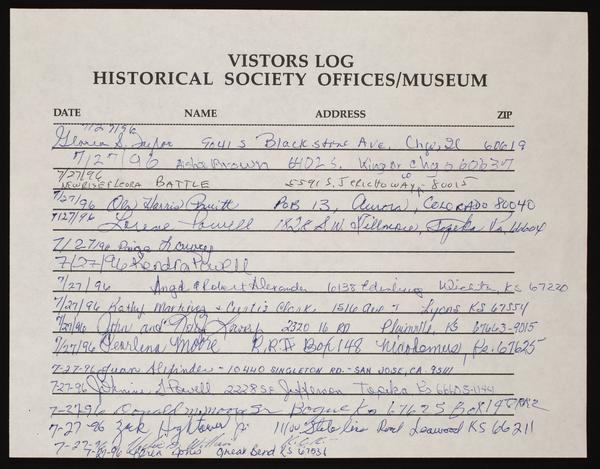 VISTORS LOG
HISTORICAL SOCIETY OFFICES/MUSEUM
DATE NAME ADDRESS ZIP
7/27/96
Gloria S. Taylor 9041 S Blackstone Ave, Chg, Il 60619
7/27/96 Brown S. King Dr Chg 60637
7/27/96
BATTLE 5591 S. JERICHO WAY, 80015
7/27/96 Ola Harris Pruitt POB 13, Aurora, COLORADO 80040
7/27/96 Lorene Powell 1828 S.W. Villmore, Topeka 66604
7/27/96
7/27/96 Kendra Powell
7/27/96 Angel & Robert Alexander 10138 Edinburg Wichita, KS 67220
7/27/96 Kathy Martinez & Curtis Clark 1516 Ave Lyons KS 67554
7/27/96 John and 2320 16 RD Plainville, KS 67663-9015
7/27/96 Pearlena Moore R.R.1 Box 148 Nicodemus, Ks. 67625
7-27-96 Juan Alexander - 10440 SINGLETON RD. - SAN JOSE, CA. 95111
7-27-96 J. Powell 2228 SE Jefferson Topeka Ks 66605-1141
7-27-96 Donald Moore Sr Bogue Ks 67625 Box 147
7-27-96 Zack Hightower Jr 11100 State Line Road Leawood KS 66211
7-27-96
7-27-96 Jones Great Bend KS 67031